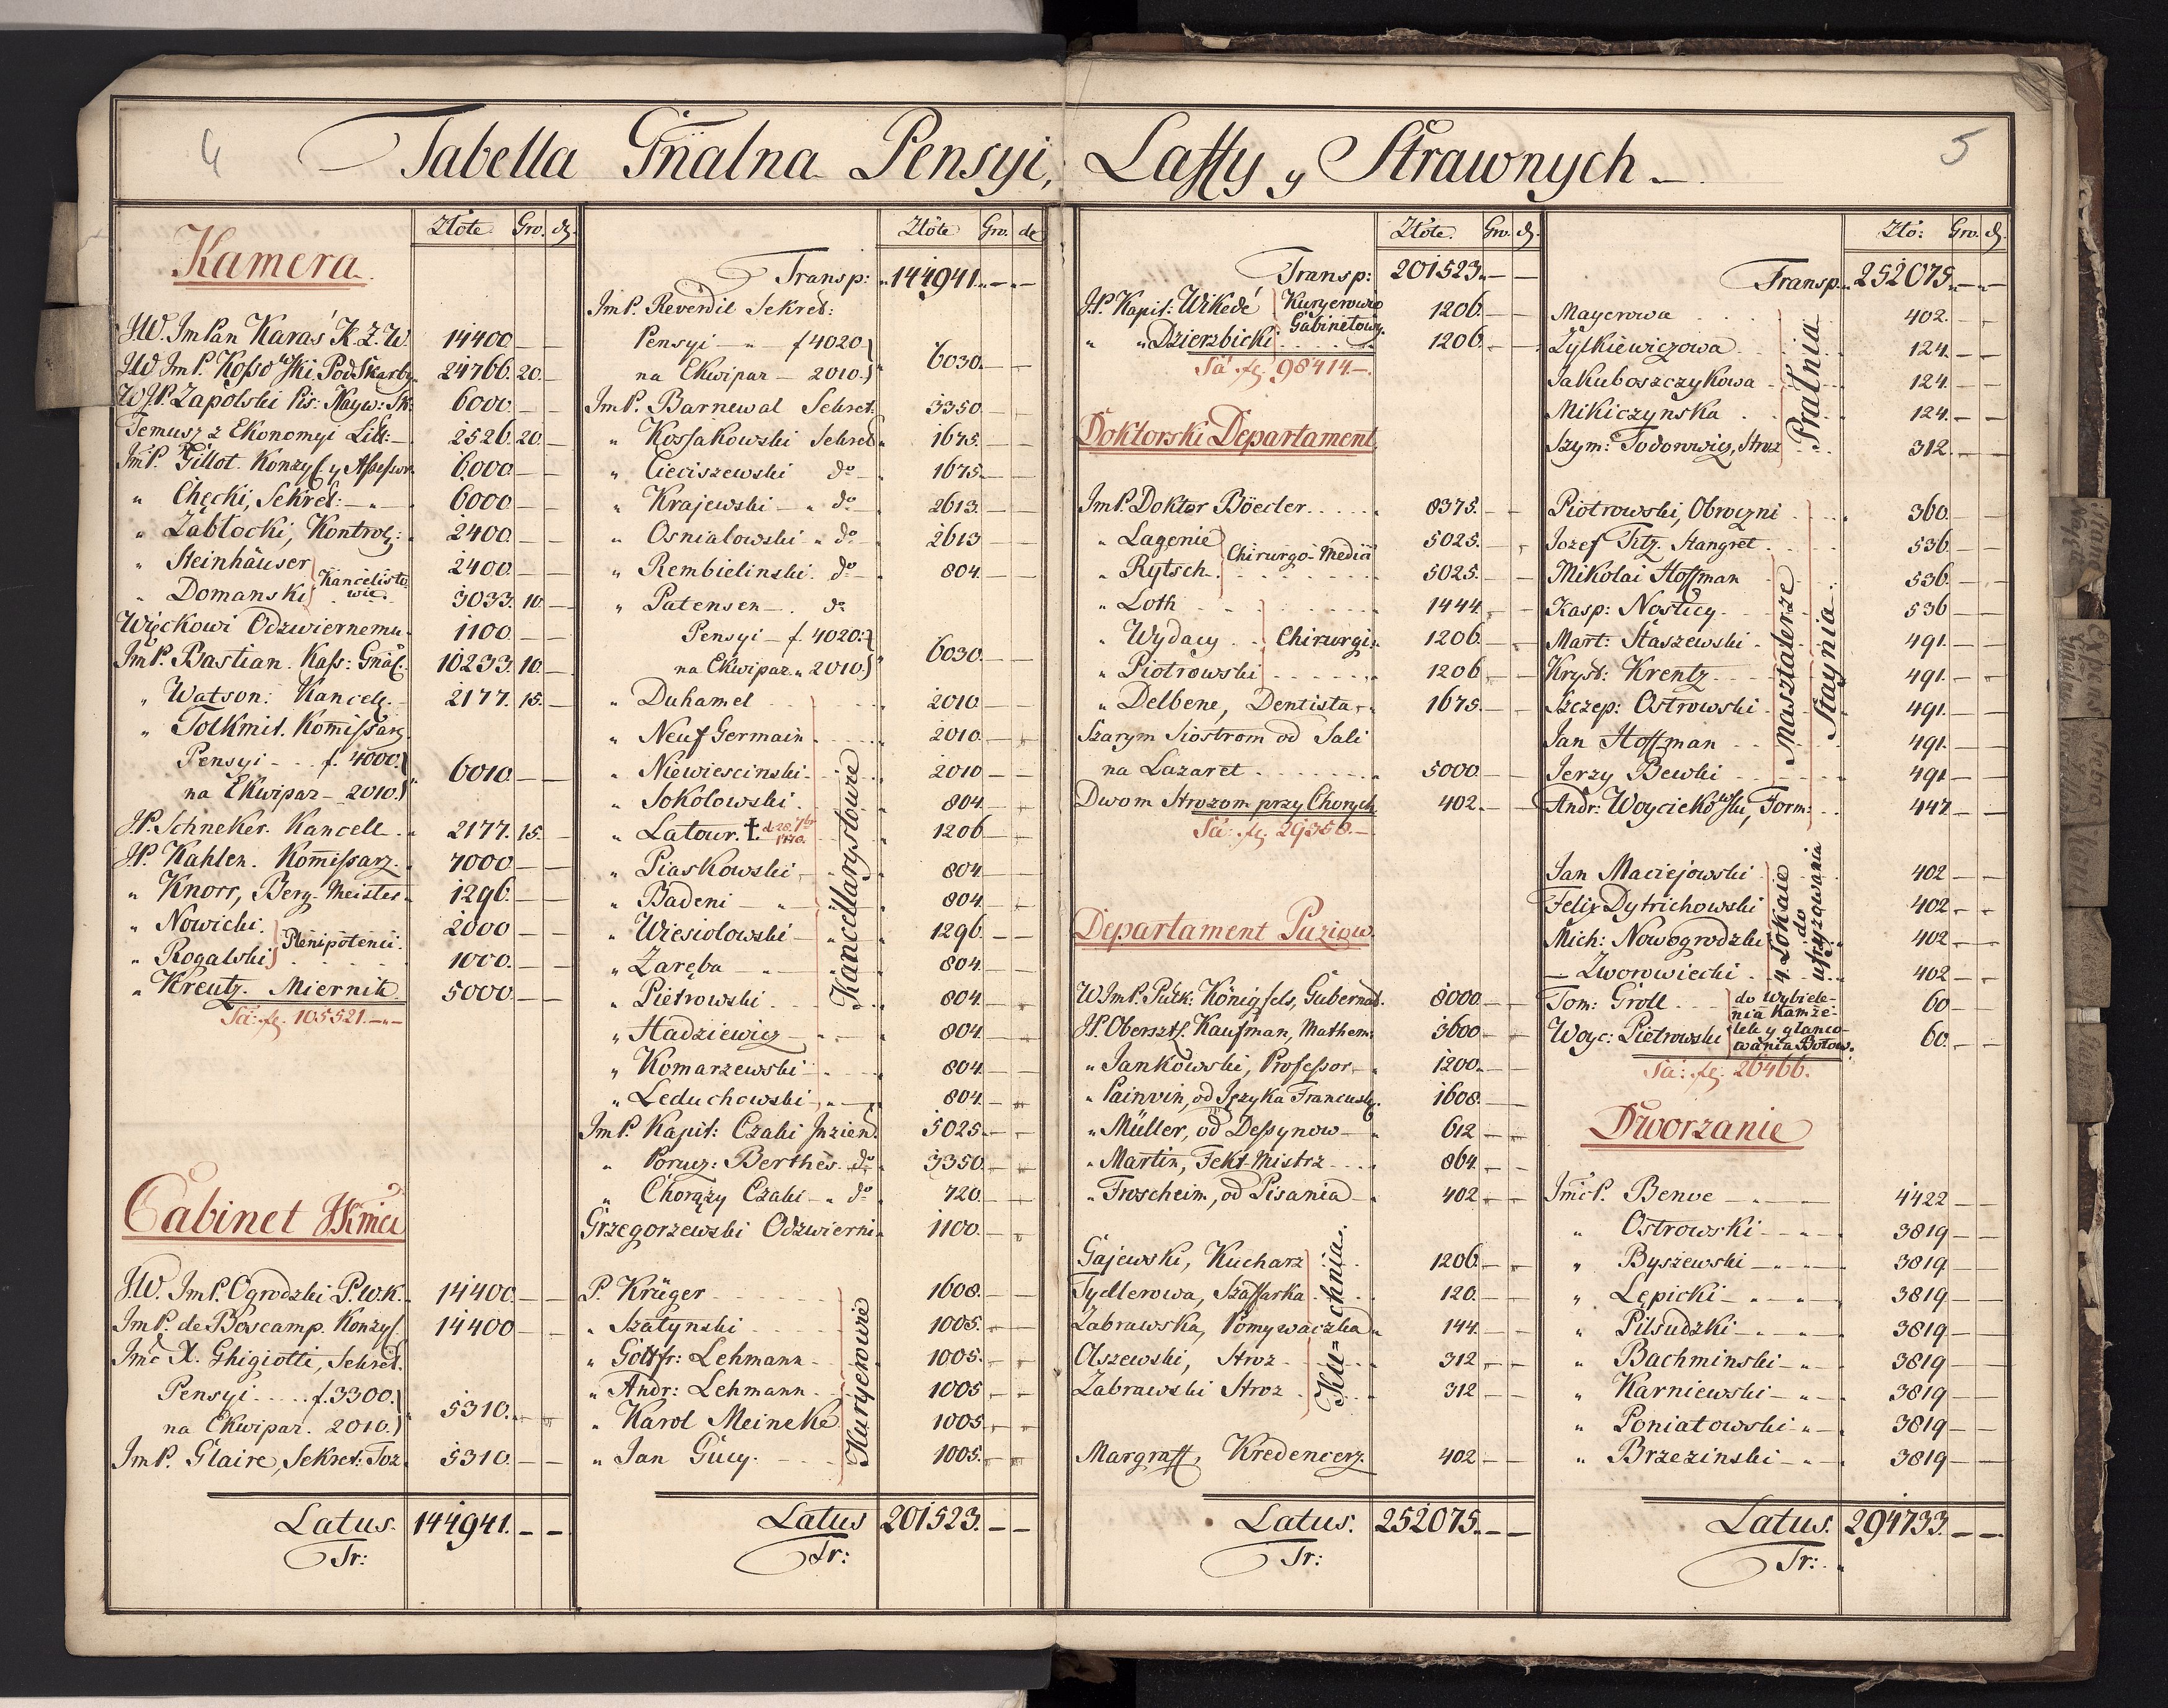 4
Tabella Gn̄alna Pensyi, Laffy y Strawnych
5
Złote. Gro. d.
Kamera.
JW. ImPan Karaś K. Z. W. 14400 — —
JW ImP. Kossowski. PodSkarb. 24766. 20. —
WJP. Zapolski Pis: Nayw: Sk: 6000. — —
Temusz z Ekonomyi Litt: — 2526. 20. —
ImP. Gillot. Konzyl y Assessor. 6000. — —
" Chęcki, Sekret: — " — 6000 — —
" Zabłocki, Kontrol: 2400. — —
" Steinhäuser 2400. — —
Kancelistowie.
" Domanski 3033. 10. —
Więckowi Odzwiernemu. 1100. — —
ImP. Bastian. Kass: Gnāl. 10233. 10. —
" Watson. Kancell. 2177. 15. —
" Tolkmit. Kom̄issarz.
Pensyi - - f. 4000.
6010. — —
na Ekwipaż — 2010.
JP. Schneker. Kancell. 2177. 15. —
JP. Kahlen. Kom̄issarz. 7000 — —
" Knorr, Berg-Meister 1296. — —
" Nowicki. 2000 — —
Plenipotenci.
" Rogalski 1000. — —
" Kreutz. Miernik. 5000 — —
Sa: fl. 105521. — " —
Cabinet JKmci
JW. ImP. Ogrodzki P.W.K. 14400. — —
ImP. de Boscamp. Konzyl. 14400 — —
Imc X. Ghigiotti, Sekret.
Pensyi - - - - f. 3300.
5310. — —
na Ekwipaż. 2010.
ImP. Glaire, Sekret: Toż. 5310. — —
Latus. 144941. — —
Tr:
Złóte Gro. de
Transp: 144941. — —
ImP. Reverdil Sekret:
Pensyi — " — f 4020
6030. — —
na Ekwipaż — 2010.
ImP. Barnewal Sekret: 3350. — —
" Kossakowski Sekret 1675. — —
" Cieciszewski do — 1675. — —
" Krajewski — " do — 2613. — —
" Osnialowski — " do — 2613 — —
" Rembielinski. do — 804. — —
" Patensen — . do
Pensyi — f. 4020:
6030. — —
na Ekwipaż. " 2010
" Duhamel 2010. — —
" Neuf Germain 2010. — —
" Niewiescinski 2010 — —
" Sokolowski. 804. — —
" Latour. † d. 28. 7br 1770. 1206 — —
" Piaskowski 804 — —
" Badeni — " — 804. — —
" Wiesiolowski — 1296. — —
" Zaręba — " — 804. — —
" Pietrowski. 804. — —
Kancellarystowie
" Hadziewicz 804. — —
" Komarzewski 804. — —
" Leduchowski 804. — —
ImP. Kapit: Czaki Inzien. 5025. — —
" Porucz: Berthès. do 3350. — —
" Chorąży Czaki — " do — 720. — —
Grzegorzewski Odzwierni. 1100. — —
P. Krüger 1608. — —
" Szatynski 1005. — —
" Gottfr: Lehmann 1005. — —
" Andr: Lehmann 1005 — —
" Karol Meineke 1005 — —
" Jan Gücy. 1005. — —
Kuryerowie
Latus 201523. — —
Tr:
Złote. Gro. d.
Transp: 201523. — —
JP. Kapit: Wikedé 1206. — —
Kuryerowie Gabinetowi.
" " Dzierzbicki 1206. — —
Sā fl. 98414. —.
Doktorski Departament.
ImP. Doktor Böecler 8375. — —
" Lagenie 5025. — —
Chirurgo-Medici
" Rytsch. 5025. — —
" Loth 1444. — —
" Wydacy 1206. — —
Chirurgi.
" Piotrowski 1206 — —
" Delbene, Dentista 1675. — —
Szarym Siostrom od Sali
na Lazaret 5000 — —
Dwom Strozom przy Chorych 402. — —
Sā: fl. 29358. —
Departament Paziow.
WImP. Pułk: Königfels, Gubernat. 8000. — —
JP. Obersztl. Kaufman, Mathem: 3600 — —
" Jankowski, Professor 1200. — —
" Painvin, od Języka Francusk. 1608. — —
" Müller, od Dessynow — 612 — —
" Martin, Fekt-Mistrz 864. — —
" Froscheim, od Pisania 402 — —
Gajewski, Kucharz 1206. — —
Tydlerowa, Szaffarka 120. — —
Zabrawska, Pomywaczka 144. — —
Olszewski, Stroz 312 — —
Zabrawski Stroz 312 — —
Ku=chnia.
Margraff, Kredencerz. 402 — —
Latus. 252075. — —
Tr:
Zło: Gro. d.
Transp. 252075. — —
Mayerowa 402. — —
Zylkiewiczowa 124. — —
Jakuboszczykowa 124. — —
Mikiczynska 124. — —
Szym: Todorowicz, Stroz 312. — —
Pralnia
Piotrowski, Obroczni 360. — —
Jozef Titz. Stangret 536. — —
Mikolai Hoffman 536. — —
Kasp: Nosticy. 536 — —
Mart: Staszewski 491. — —
Kryst: Krentz 491. — —
Szczep: Ostrowski 491. — —
Jan Hoffman 491. — —
Jerzy Bewski 491 — —
Andr: Woyciekowski, Form: 447. — —
Masztalerze
Staynia
Jan Maciejowski 402 — —
Felix Dytrichowski 402 — —
Mich: Nowogrodzki 402 — —
— Zworowiecki 402 — —
4. Lokaie do ufryzowania
Tom: Groll 60 — —
Woyc: Pietrowski 60. — —
do Wybielenia Kamzelek y glancowania Botow.
Sā: fl. 26466.
Dworzanie
ImćP. Benoe 4422 — —
" Ostrowski 3819 — —
" Byszewski 3819 — —
" Lępicki 3819 — —
" Pilsudzki 3819 — —
" Bachminski 3819 — —
" Karniewski 3819 — —
" Poniatowski 3819 — —
" Brzezinski 3819 — —
Latus. 294733. — —
Tr: